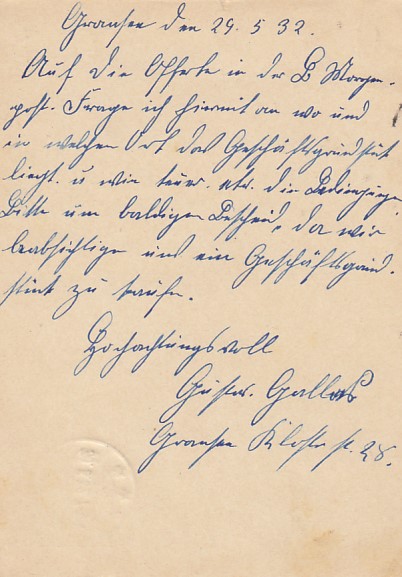 Gransee den 29. 5 32.
Auf die Offerte in der B Morgen-
post. Frage ich hiermit an wo und
in welchen Ort das Geschäftsgrundstück
liegt. u wie teuer. etc. die Bedingungen.
Bitte um baldigen Bescheid, da wir
beabsichtigen uns ein Geschäftsgrund-
stück zu kaufen.
Hochachtungsvoll
Gustav. Gallas
Gransee Klosterst. 28.